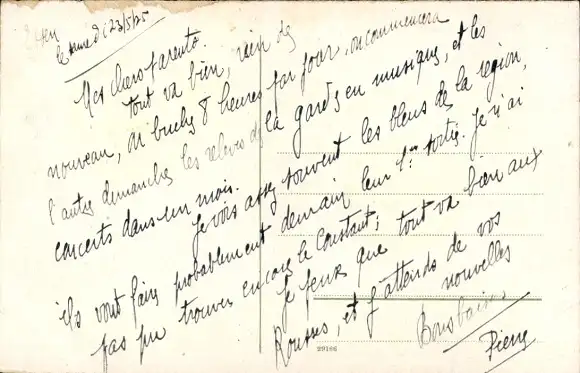 le samedi 23/5/25
Mes chers parents.
tout va bien, rien de
nouveau, 8 heures par jour, on commencera
l'autre dimanche, les relèves de la garde en musique, et les
concerts dans un mois.
Je vois assez souvent les bleus de la région,
ils vont faire probablement demain leur 1ère sortie. Je n'ai
pas pu trouver encore le Constant;
Je pense que tout va bien aux
Rousses, et j'attends de vos
nouvelles
Bons baisers
Pierre
29166